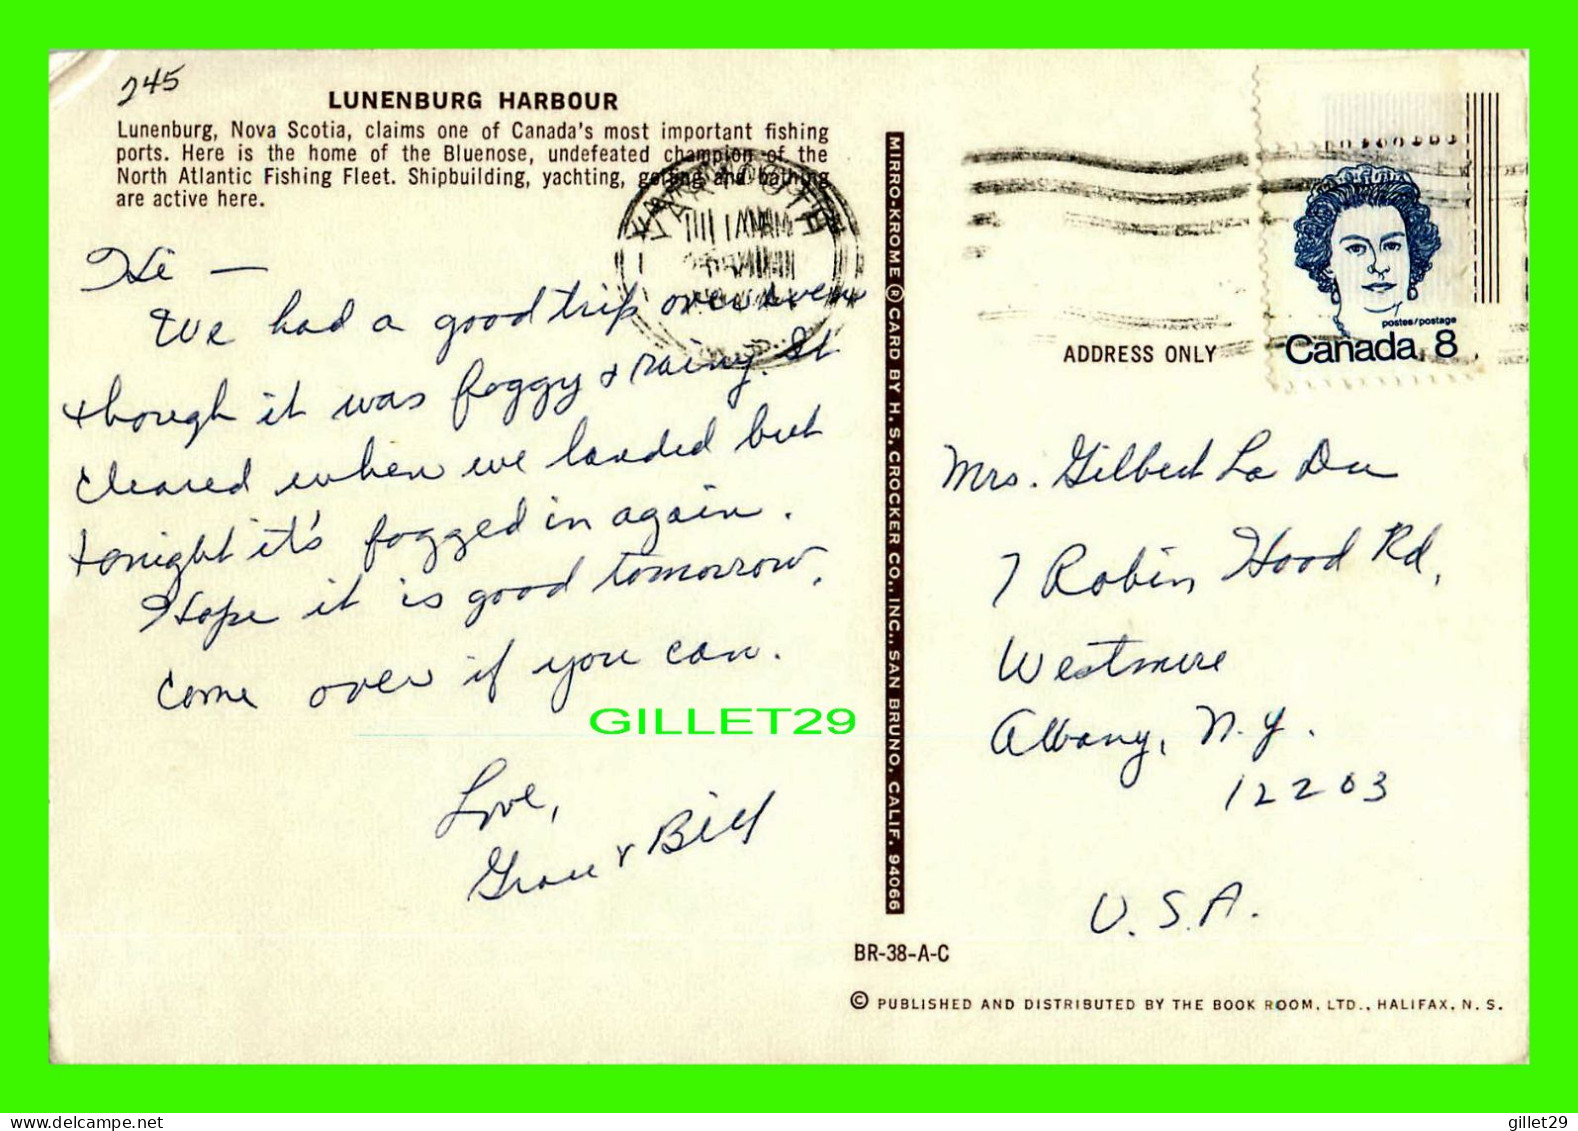 245
LUNENBURG HARBOUR
Lunenburg, Nova Scotia, claims one of Canada's most important fishing
ports. Here is the home of the Bluenose, undefeated champion of the
North Atlantic Fishing Fleet. Shipbuilding, yachting, golfing and bathing
are active here.
Hi —
We had a good trip over even
though it was foggy & rainy. It
cleared when we landed but
tonight it's fogged in again.
Hope it is good tomorrow.
Come over if you can.
Love,
Grace & Bill
GILLET29
YARMOUTH
MIRRO-KROME ® CARD BY H. S. CROCKER CO., INC., SAN BRUNO, CALIF. 94066
postes/postage
Canada 8
ADDRESS ONLY
Mrs. Gilbert La Due
7 Robin Hood Rd,
Westmere
Albany, N.Y.
12203
U.S.A.
BR-38-A-C
© PUBLISHED AND DISTRIBUTED BY THE BOOK ROOM, LTD., HALIFAX, N. S.
www.delcampe.net
gillet29